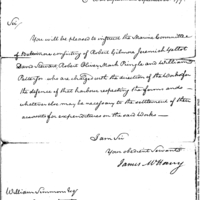 Sir,
You will be pleased to inform the Marine Committee
of Baltimore consisting of Robert Gilmor Jeremiah Yellott
David Stewart Robert Oliver Mark Pringle and William
Patterson who are charged with the direction of the works for
the defence of that harbour respecting the forms and
whatever else may be necessary to the settlement of their
accounts for expenditures on the said works —
I am Sir
Your obedient Servant
James McHenry
William Simmons Esq